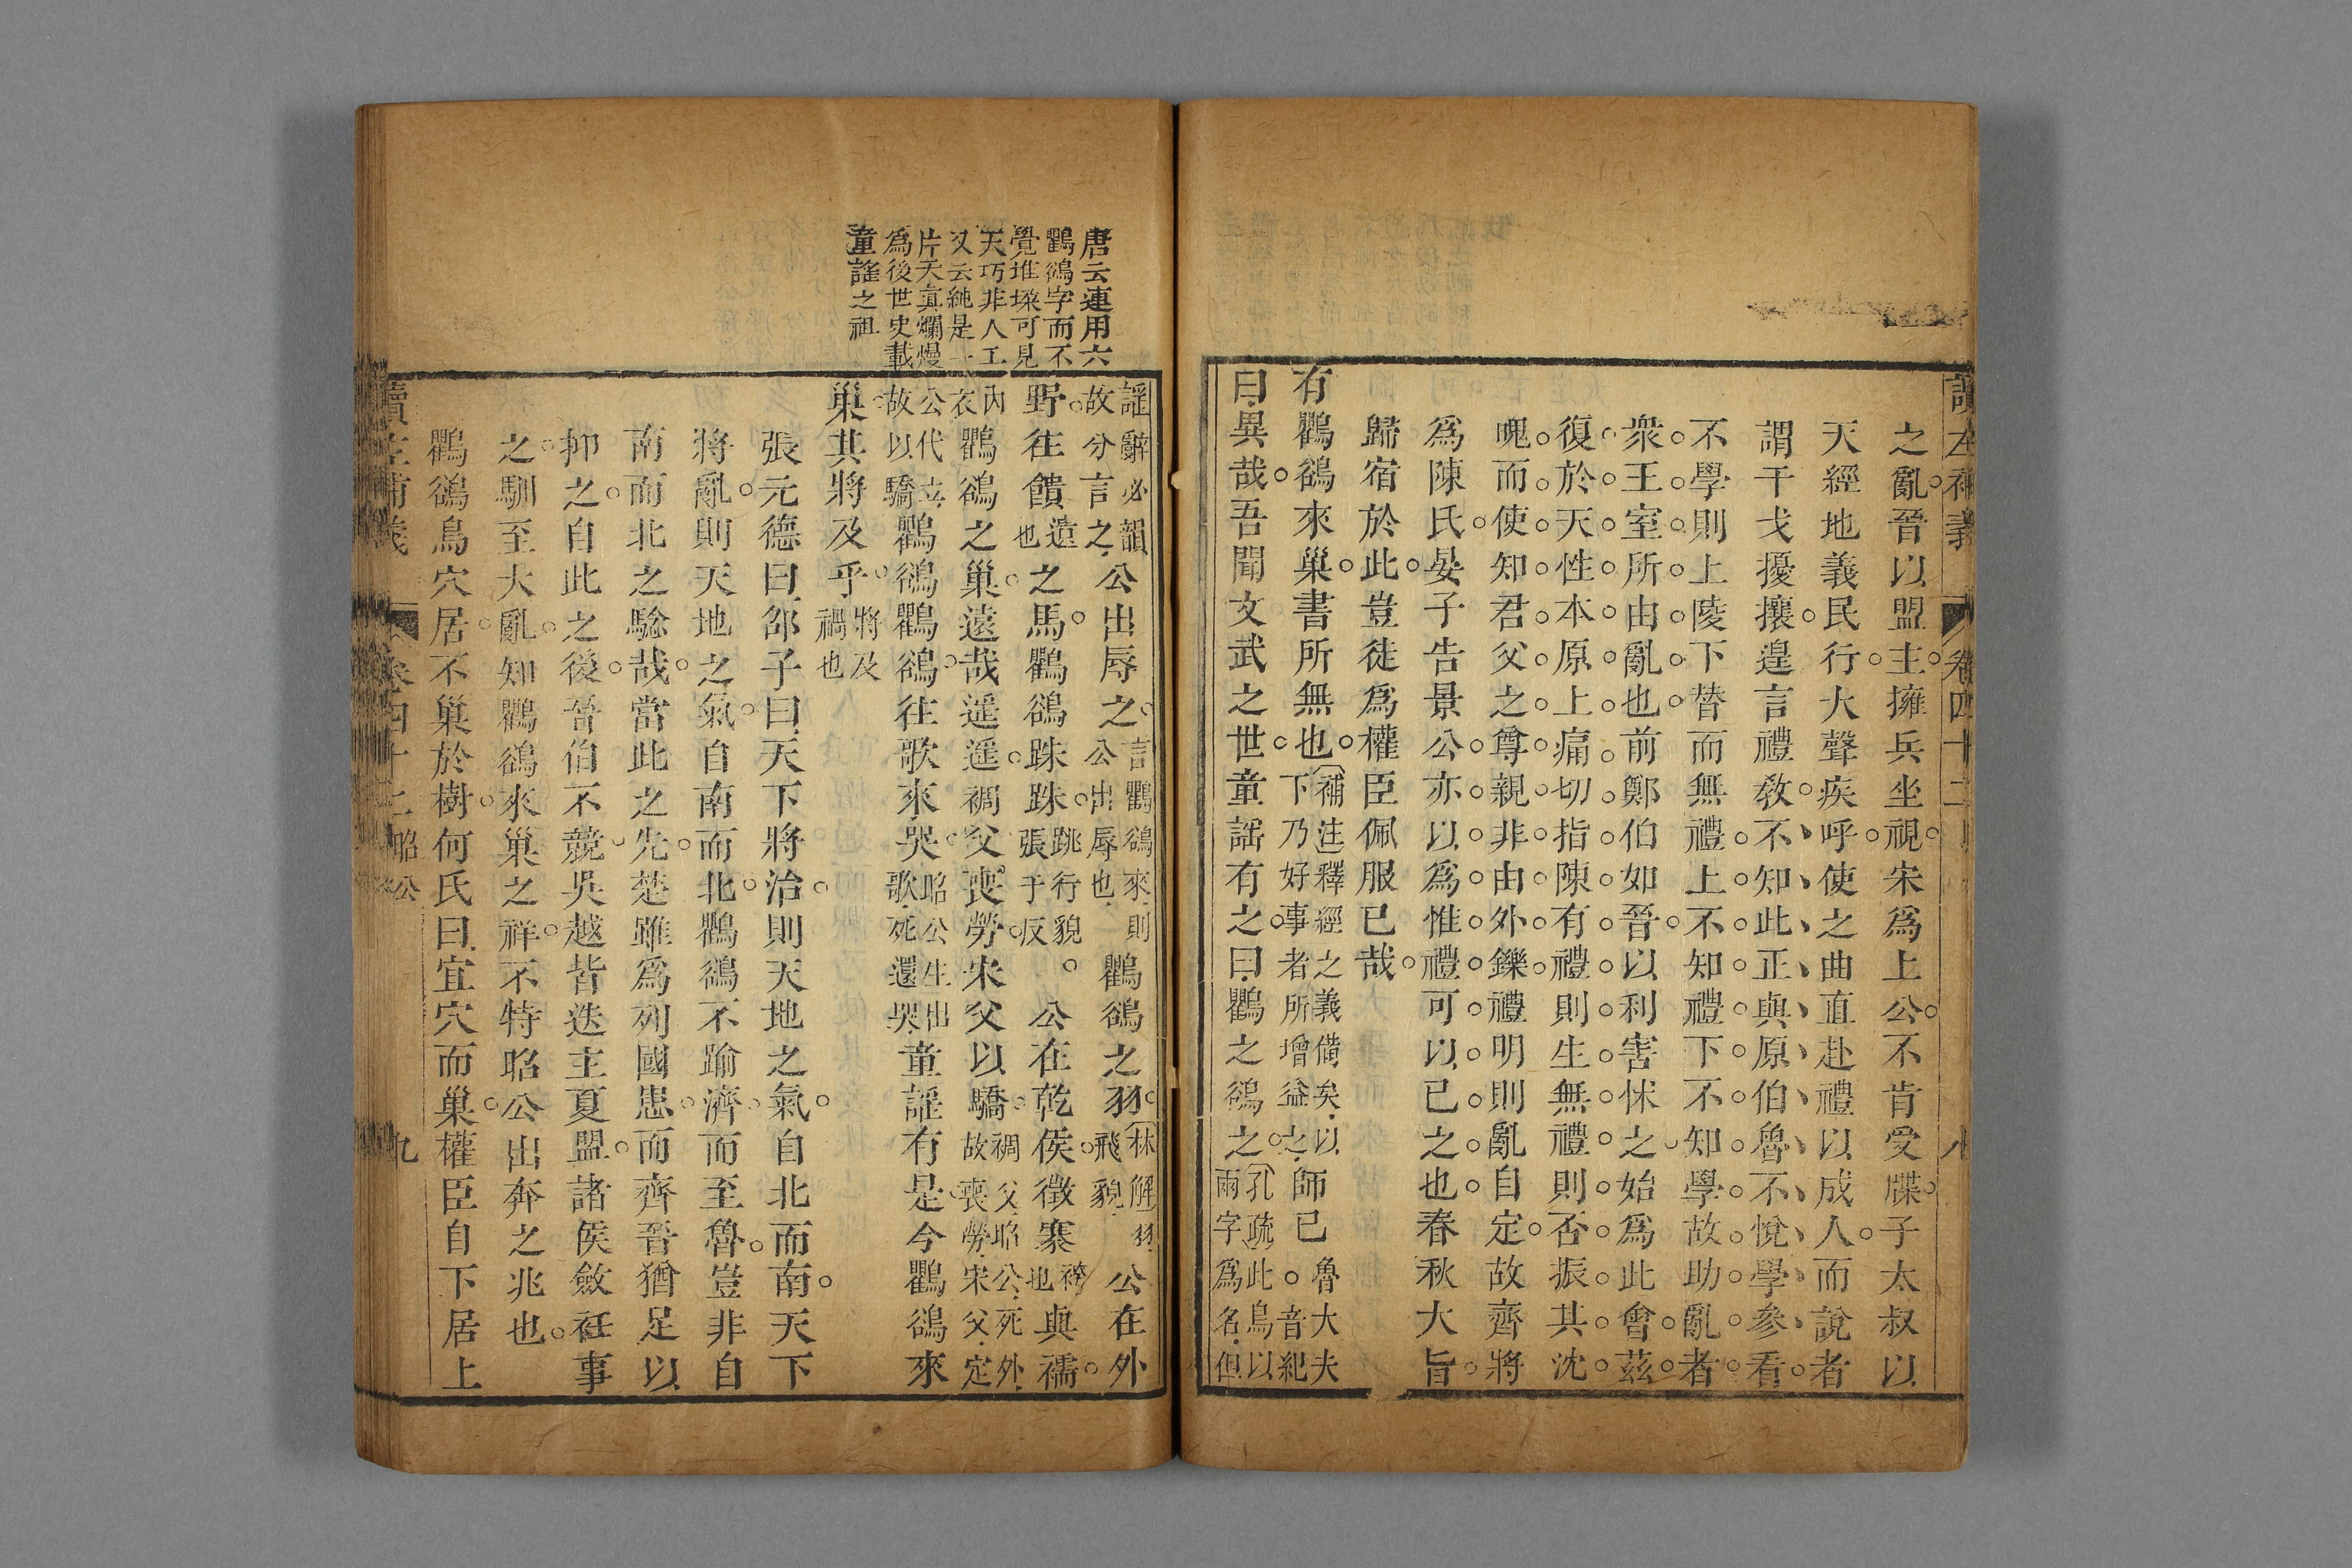 讀左補義 卷四十二 八
之亂晉以盟主擁兵坐視宋爲上公不肯受牒子太叔以
天經地義民行大聲疾呼使之曲直赴禮以成人而說者
謂干戈擾攘遑言禮敎不知此正與原伯魯不悅學參看
不學則上陵下替而無禮上不知禮下不知學故助亂者
衆王室所由亂也前鄭伯如晉以利害怵之始爲此會茲
復於天性本原上痛切指陳有禮則生無禮則否振其沈
愧而使知君父之尊親非由外鑠禮明則亂自定故齊將
爲陳氏晏子告景公亦以爲惟禮可以已之也春秋大旨
歸宿於此豈徒爲權臣佩服已哉
有鸜鵒來巢書所無也補注釋經之義備矣以下乃好事者所增益之師已魯大夫音紀
曰異哉吾聞文武之世童謠有之曰鸜之鵒之孔疏此鳥以兩字爲名但
唐云連用六
鸜鵒字而不
覺堆垛可見
天巧非人工
又云純是一
片天眞爛熳
爲後世史載
童謠之祖
謠辭必韻故分言之公出辱之言鸜鵒來則公出辱也鸜鵒之羽林解羽飛貌公在外
野往饋遺也之馬鸜鵒跦跦跳行貌張于反公在乾侯徵褰袴也與襦
內衣鸜鵒之巢遠哉遥遥裯父喪勞宋父以驕裯父昭公死外故喪勞宋父定
公代立故以驕鸜鵒鸜鵒往歌來哭昭公生出歌死還哭童謠有是今鸜鵒來
巢其將及乎將及禍也
張元德曰邵子曰天下將治則天地之氣自北而南天下
將亂則天地之氣自南而北鸜鵒不踰濟而至魯豈非自
南而北之驗哉當此之先楚雖爲列國患而齊晉猶足以
抑之自此之後晉伯不競吳越皆迭主夏盟諸侯斂衽事
之馴至大亂知鸜鵒來巢之祥不特昭公出奔之兆也
鸜鵒鳥穴居不巢於樹何氏曰宜穴而巢權臣自下居上
讀左補義 卷四十二 昭公 九